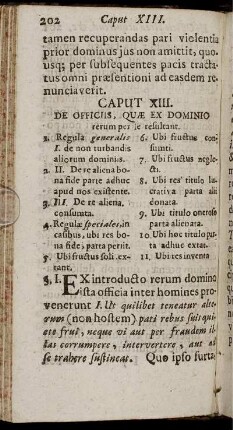 202 Caput XIII.
tamen recuperandas pari violentia
prior dominus jus non amittit, quo-
usq; per subsequentes pacis tracta-
tus omni præsensioni ad easdem re-
nunciaverit.
CAPUT XIII.
DE OFFICIIS, QUÆ EX DOMINIO
rerum per se resultant.
1. Regula generalis
I. de non turbandis
aliorum dominiis.
2. II. De re aliena bo-
na fide parte adhuc
apud nos existente.
3. III. De re aliena,
consumta.
4. Regulæ speciales, in
casibus, ubi res bo-
na fide, parta periit.
5. Ubi fructus soli ex-
tant.
6. Ubi fructus con-
sumti.
7. Ubi fructus negle-
cti.
8. Ubi res' titulo lu-
crativa parta alii
donata.
9. Ubi titulo oneroso
parta alienata.
10. Ubi hoc titulo par-
ta adhuc extat.
11. Ubi res inventa
§. I. EX introducto rerum dominio
ista officia inter homines pro-
venerunt I. Ut quilibet teneatur alte-
rum (non hostem) pati rebus suis qui-
ete frui, neque vi aut per fraudem il-
las corrumpere, intervertere, aut ad
se trahere sustineat. Quo ipso furta,